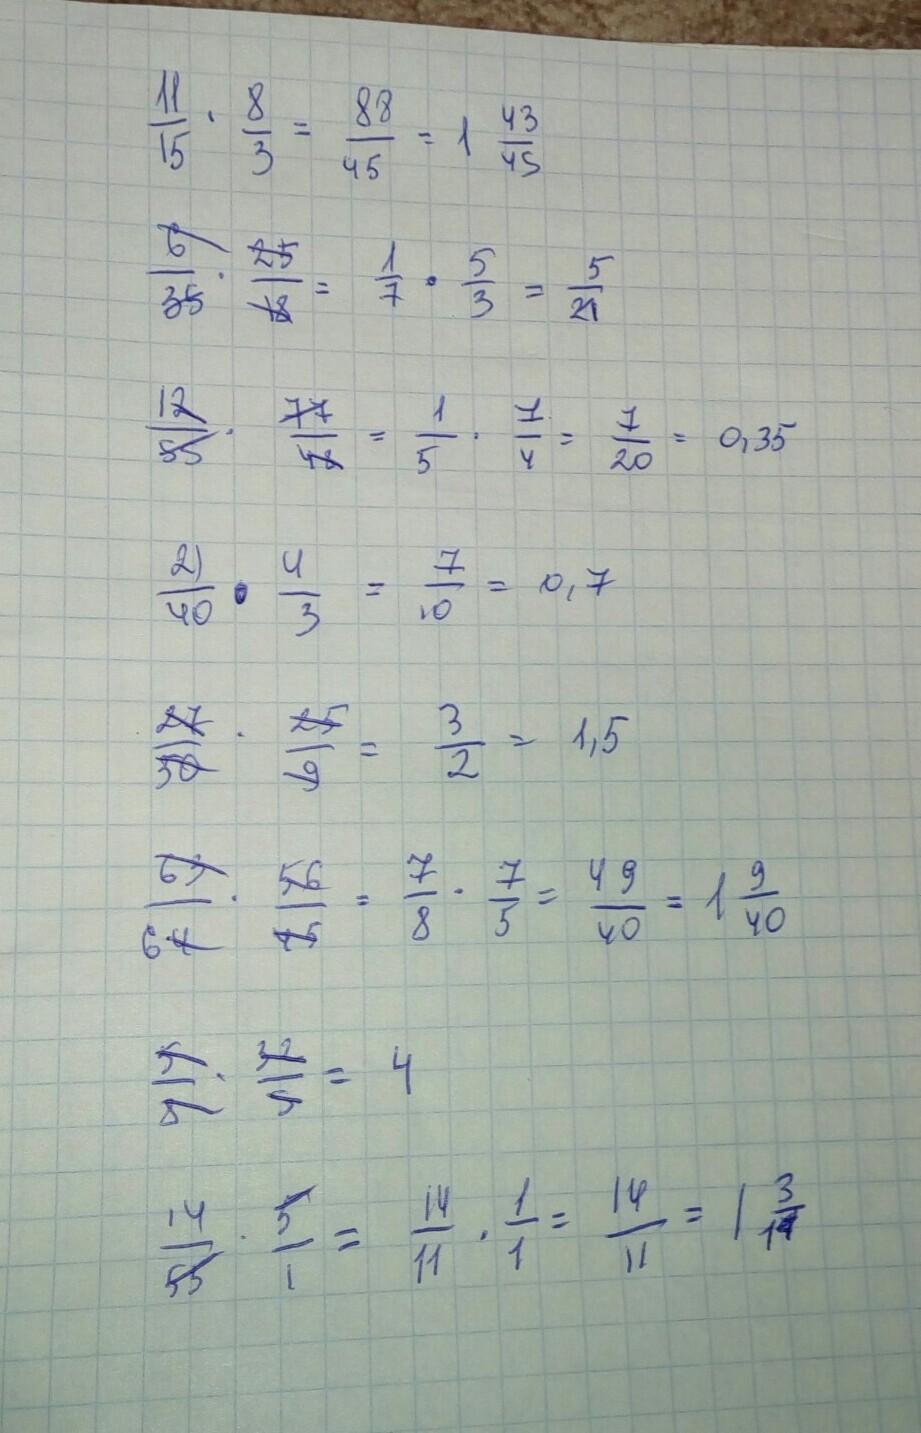 11/15 · 8/3 = 88/45 = 1 43/45
6/35 · 25/18 = 1/7 · 5/3 = 5/21
12/55 · 77/48 = 1/5 · 7/4 = 7/20 = 0,35
21/40 · 4/3 = 7/10 = 0,7
27/50 · 25/9 = 3/2 = 1,5
63/64 · 56/45 = 7/8 · 7/5 = 49/40 = 1 9/40
5/8 · 32/5 = 4
14/55 · 5/1 = 14/11 · 1/1 = 14/11 = 1 3/11